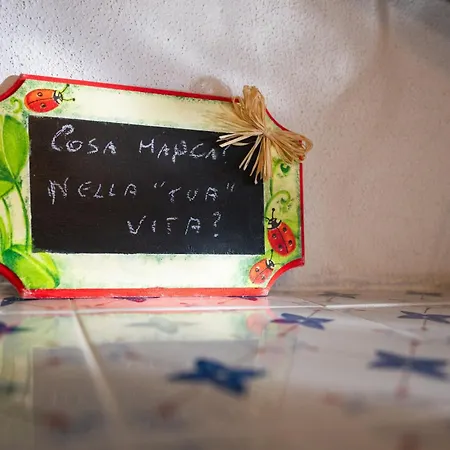 COSA MANCA?
NELLA "TUA"
VITA?